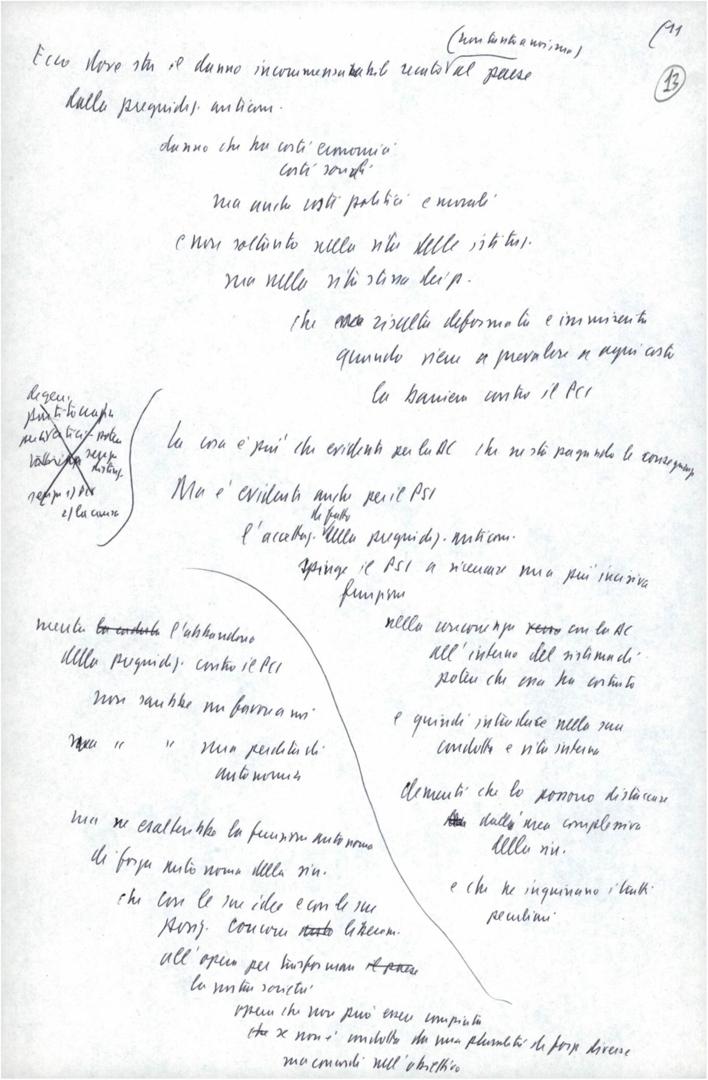 (11
13
(non tanto a noi ma)
Ecco dove sta il danno incommensurabile recato al paese
dalla pregiudiz. anticom.
danno che ha costi economici
costi sociali
ma anche costi politici e morali
e non soltanto nella vita delle istituz.
ma nella vita stessa dei p.
che risulta deformata e immiserita
quando viene a prevalere a ogni costo
la barriera contro il PCI
degen.
partitocrazia
2) la causa
La cosa è più che evidente per la DC che ne sta pagando le conseguenze
Ma è evidente anche per il PSI
di fatto
l'accettaz. della pregiudiz. anticom.
spinge il PSI a ricercare una più incisiva
funzione
nella concorrenza verso con la DC
all'interno del sistema di
potere che essa ha costruito
e quindi introduce nella sua
condotta e vita interna
elementi che lo possono distaccare
dall'area complessiva
della sin.
e che ne inquinano i tratti
peculiari
mentre la condotta l'abbandono
della pregiudiz. contro il PCI
non sarebbe un favore a noi
" " una perdita di
autonomia
ma ne esalterebbe la funzione autonoma
di forza autonoma della sin.
che con le sue idee e con le sue
posiz. concorre liberam.
all'opera per trasformare il paese
la nostra società
opera che non può essere compiuta
che se non è condotta da una pluralità di forze diverse
ma concordi nell'obiettivo